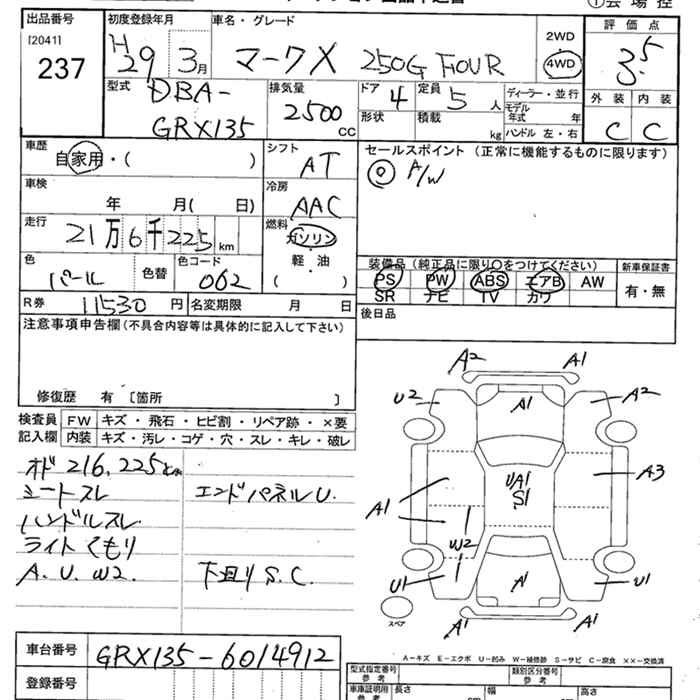 出品番号 初度登録年月 車名・グレード 評価点
[2041]
237
H29 3月 マークX 250G FOUR 2WD 4WD 3.5
型式 DBA-GRX135
排気量 2500 CC
ドア 4 定員 5 人 ディーラー・並行
形状 積載 kg モデル年式 年
ハンドル 左・右
外装 内装
C C
車歴 自家用・( )
シフト AT
セールスポイント (正常に機能するものに限ります)
◎ A/W
車検 年 月( 日)
冷房 AAC
走行 21万6千225km
燃料 ガソリン・軽油
( )
色 パール 色替 色コード 062
装備品 (純正品に限り○をつけてください) 新車保証書
PS PW ABS エアB AW 有・無
SR ナビ TV カワ
R券 11530円 名変期限 月 日
後日品
注意事項申告欄(不具合内容等は具体的に記入して下さい)
修復歴 有 〔箇所 〕
検査員記入欄
FW キズ・飛石・ヒビ割・リペア跡・×要
内装 キズ・汚レ・コゲ・穴・スレ・キレ・破レ
オド 216,225km
シートスレ エンドパネルU.
ハンドルスレ
ライトくもり
A. U. W2. 下回りS.C.
A2 A1
U2 A1 A2
A1 UA1 S1 A3
W2
U1 A1 U1
A1 A1
スペア
車台番号 GRX135-6014912
登録番号
A-キズ E-エクボ U-凹み W-補修跡 S-サビ C-腐食 ××-交換済
型式指定番号 参考 類別区分番号 参考
車庫証明用 参考 長さ 幅 高さ